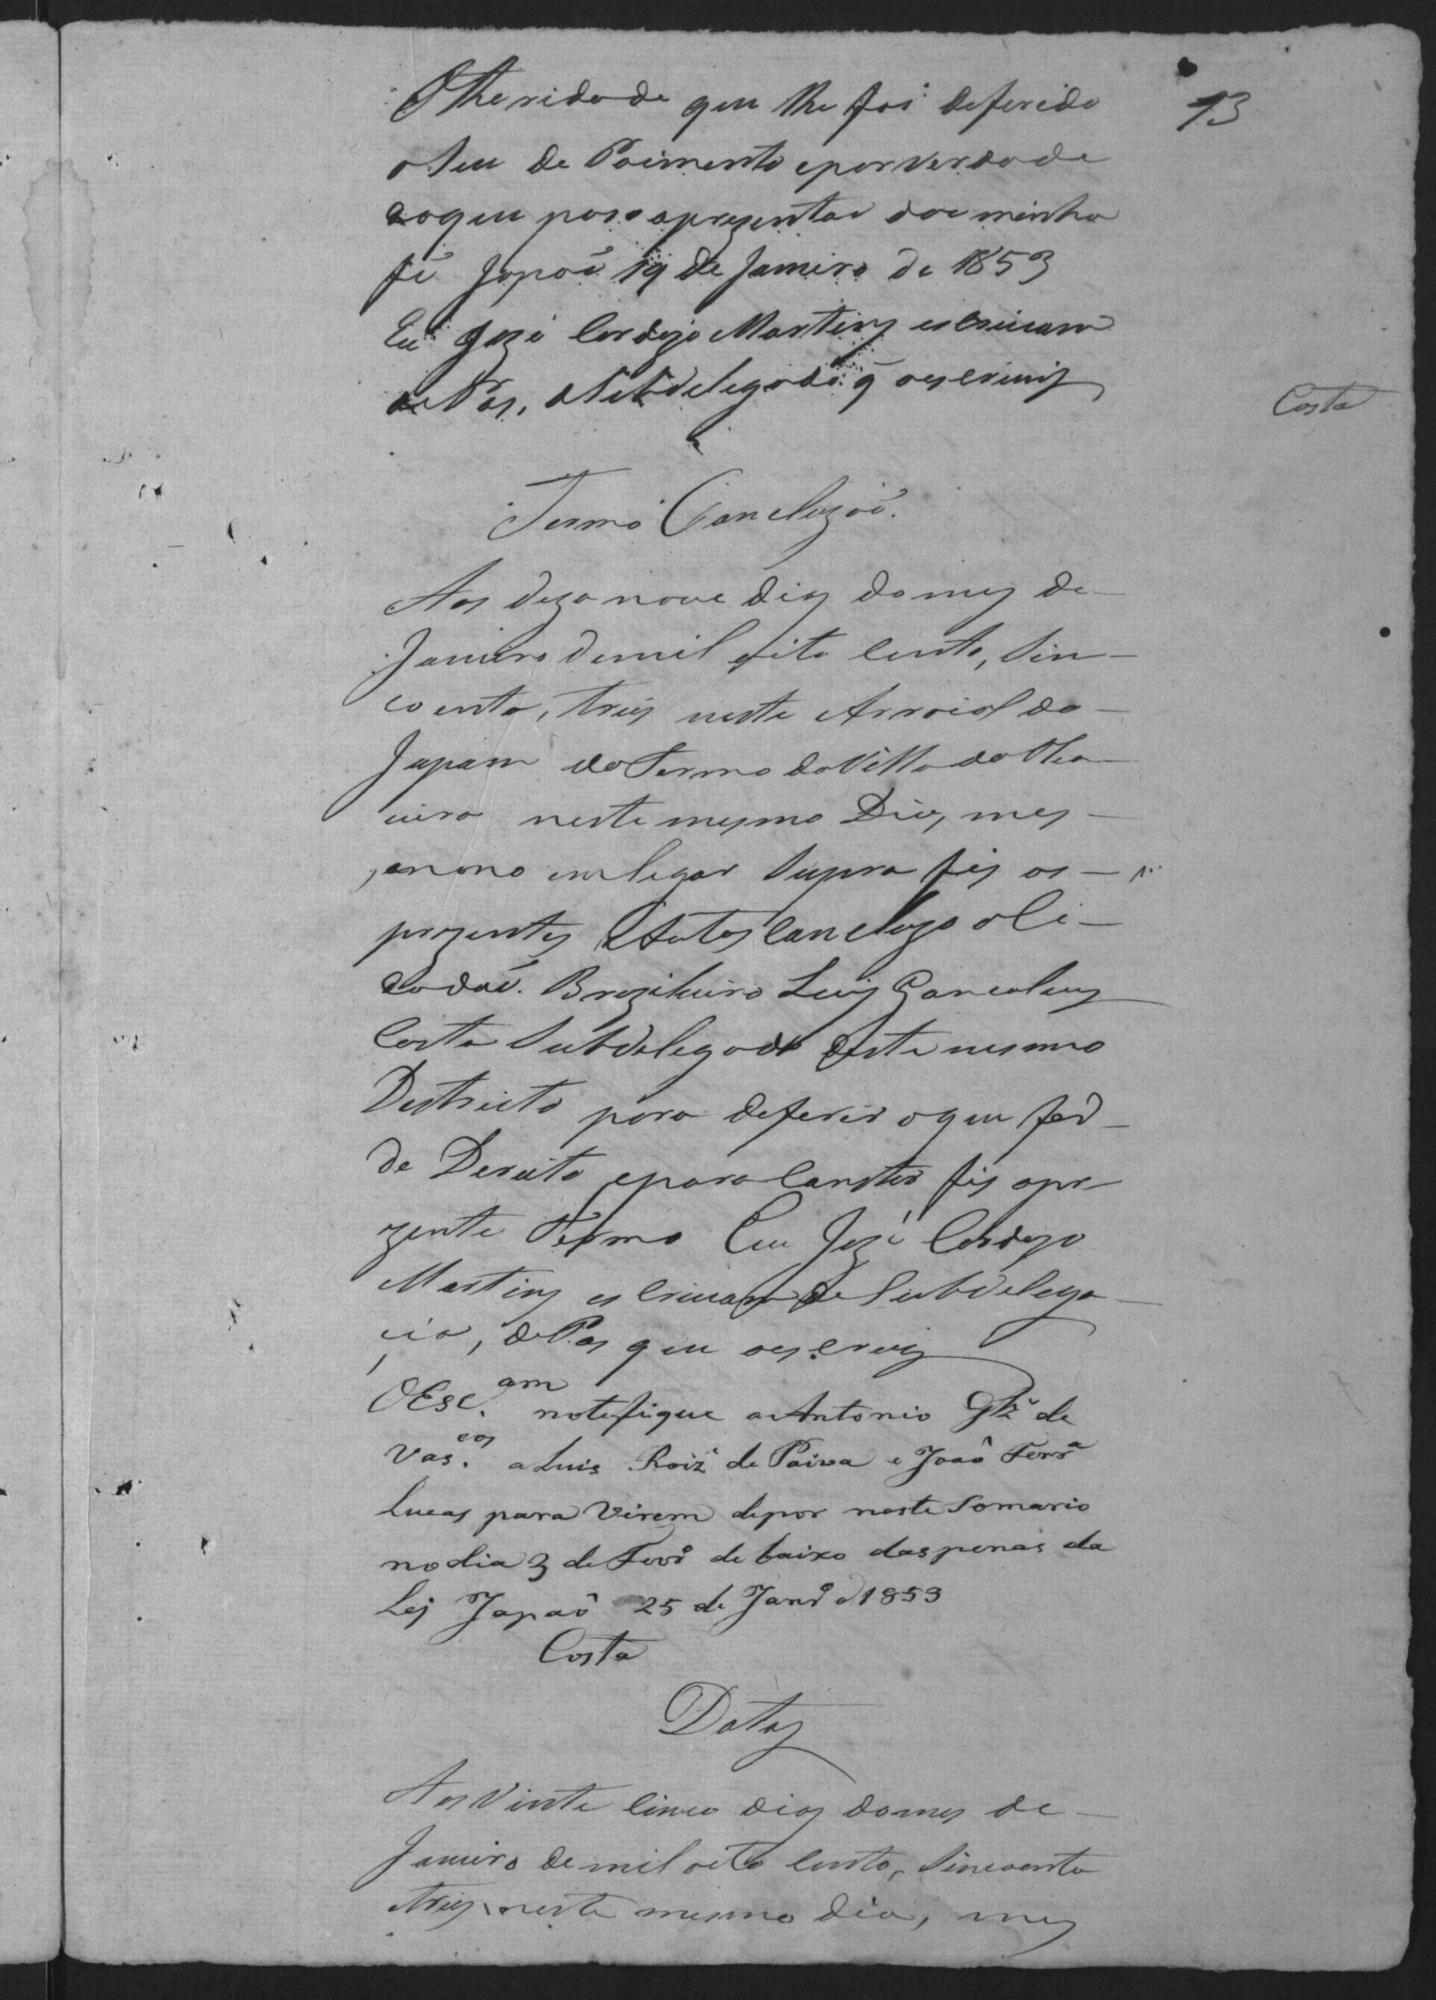 Otheridade que lhe foi deferido
o seu de Poimento eporverdade
do que paso aprezentar dou minha
fé Japaõ 19 de Janeiro de 1853
Eu Jozé Cardozo Martins escrivam
de Pas, e Subdelegado q̃ oescrivij
13
Costa
Termo Conclusaõ.
Aos dezanove dias do mes de
Janeiro de mil oito Cento, Sin
coenta, tres neste Arraial do
Japam do Termo da Villa da Oli
veira neste mesmo Dia, mes
, anno em legar Supra fis os
prezentes Autos Concluzo o Ci
dadaõ Brazileiro Luis Goncalves
Costa Subdelegado deste mesmo
Destricto para deferir o que for
de Dereito epara Constar fis opre
zente Termo Eu Jozé Cardozo
Martins escrivam de Subdelega
cia, de Pas que oescrevij
OEsc.am notefique a Antonio Glz' de
Vas.cos a Luis Roiz' de Paiva e Joaõ Ferr.a
Lucas para Virem depor neste Somario
no dia 3 de Fevr.o de baixo das penas da
Lej Japaõ 25 de Janr.o d 1853
Costa
Datas
Aos Vinte Cinco dias do mes de
Janeiro de mil oito Cento, Sincoenta
tres, neste mesmo dia, mes